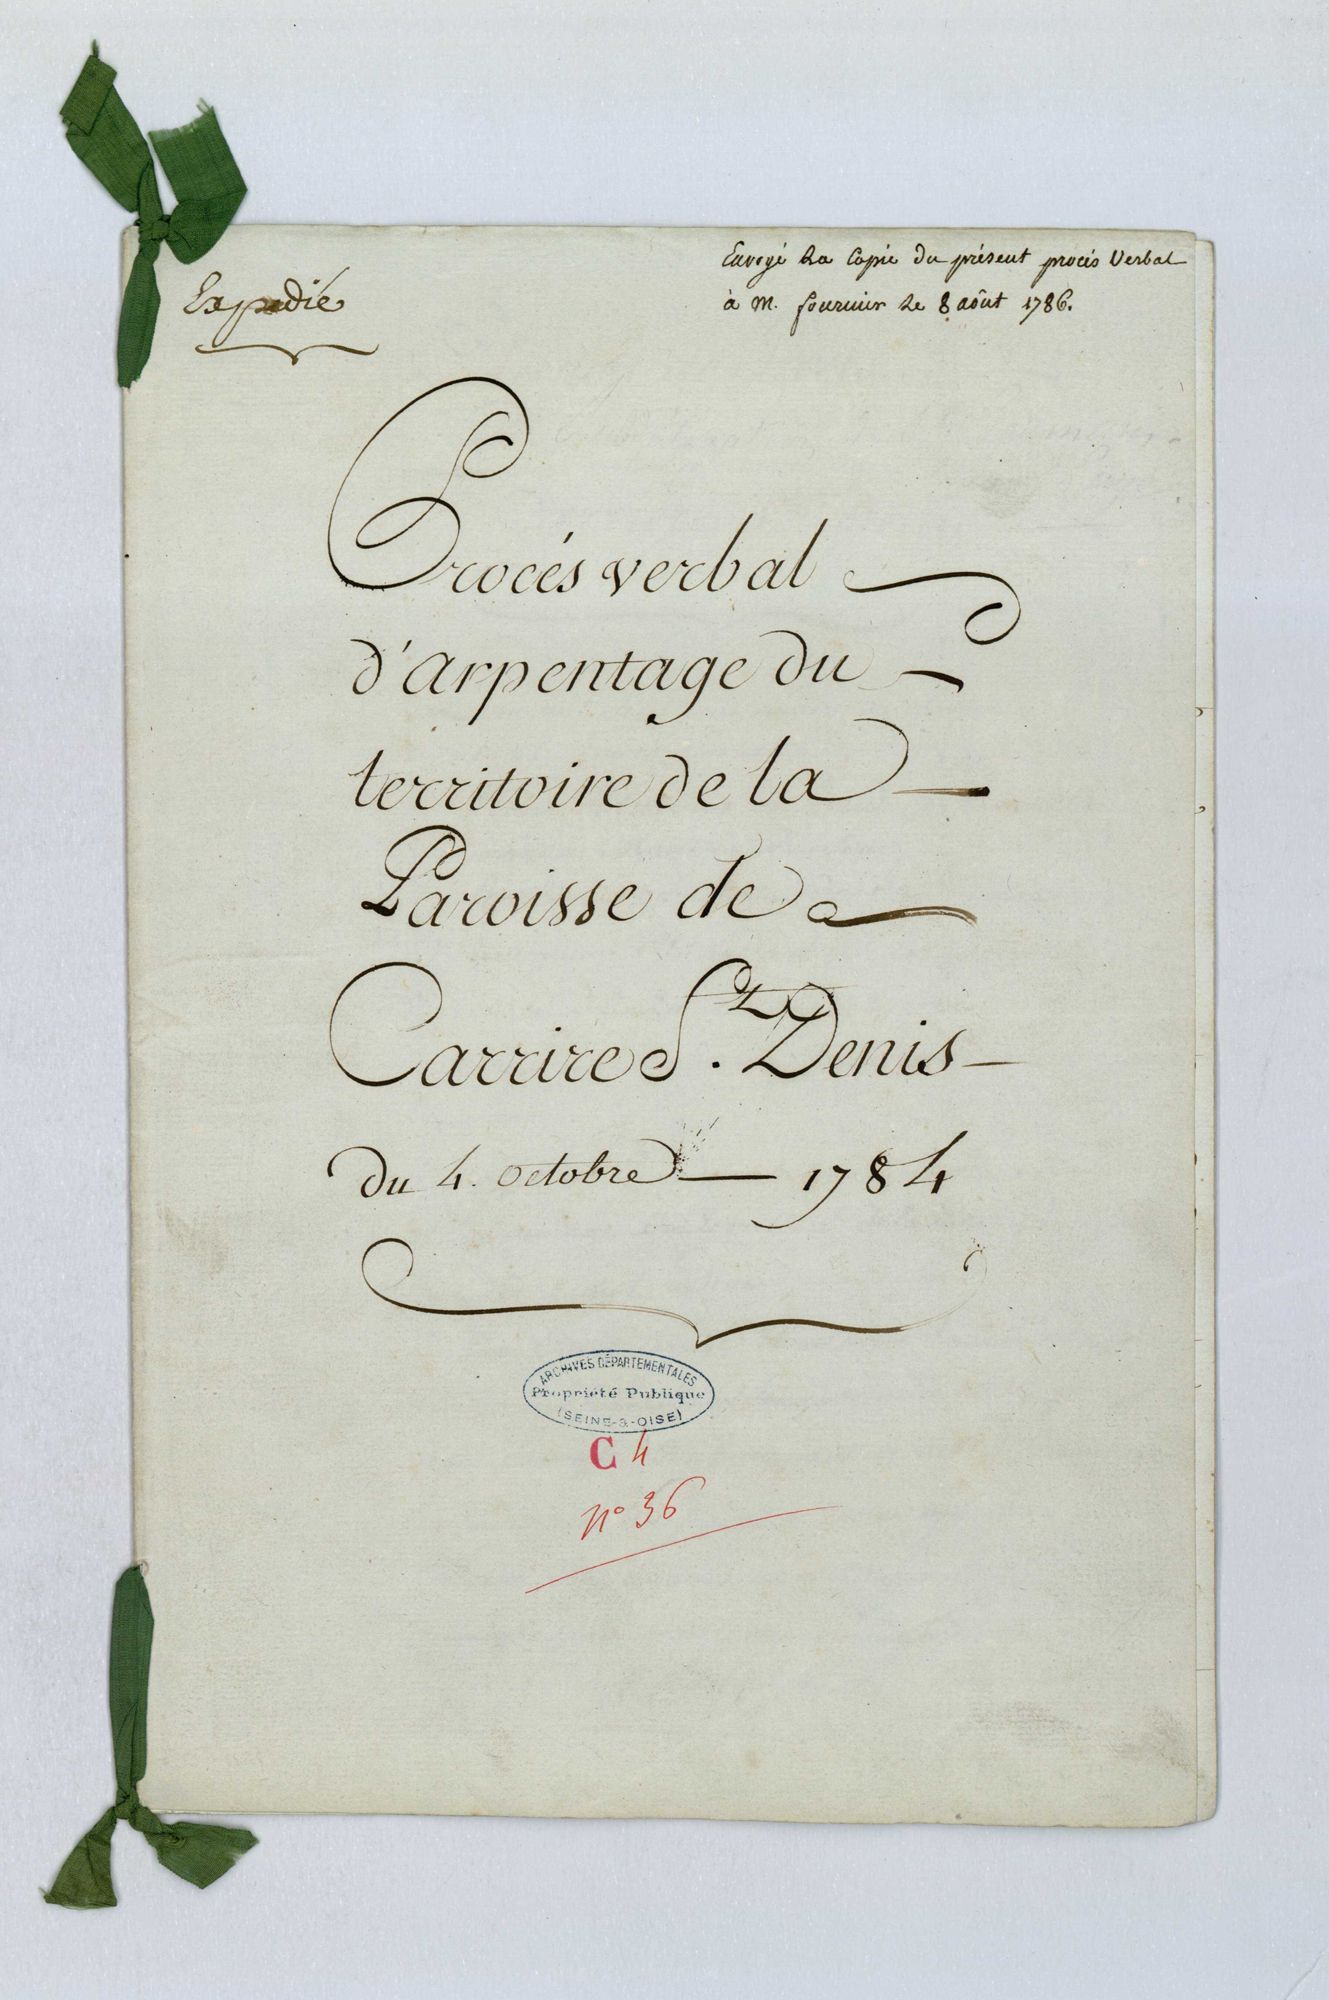 Expedié
Envoyé la Copie du présent procès Verbal
à M. fournier le 8 août 1786.
Procés verbal
d'arpentage du
territoire de la
Paroisse de
Carrire St. Denis
du 4. octobre 1784
ARCHIVES DÉPARTEMENTALES
Propriété Publique
(SEINE-&-OISE)
C 4
n° 36